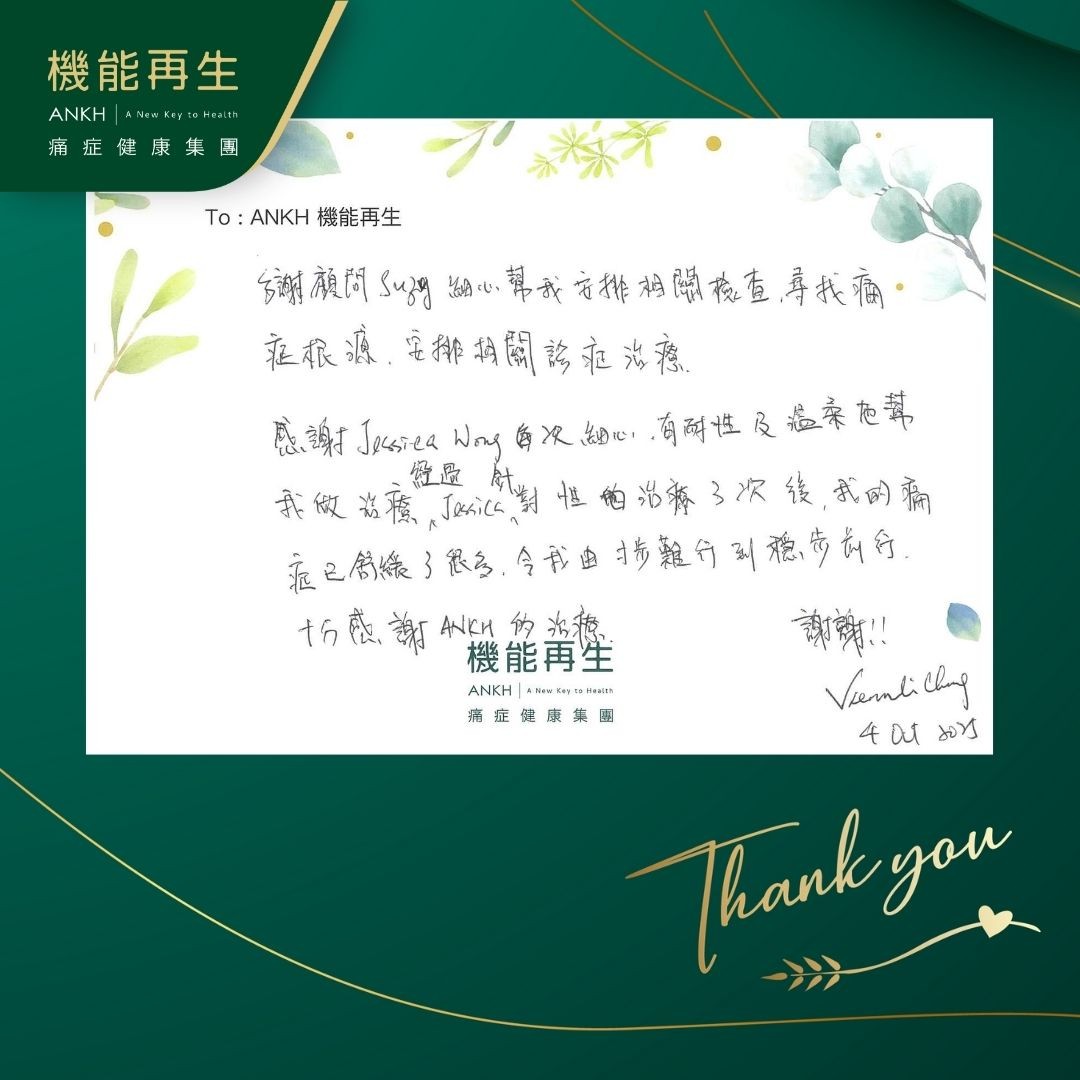 機能再生
ANKH | A New Key to Health
痛症健康集團
To : ANKH 機能再生
多謝顧問Suzy細心幫我安排相關檢查,尋找痛
症根源,安排相關診症治療.
感謝Jessica Wong每次細心,有耐性及溫柔地幫
我做治療,經過Jessica針對性的治療了次後,我的痛
症已舒緩了很多,令我由寸步難行到穩步前行.
十分感謝ANKH的治療.
謝謝!!
機能再生
ANKH | A New Key to Health
痛症健康集團
4 Oct 2025
Thank you